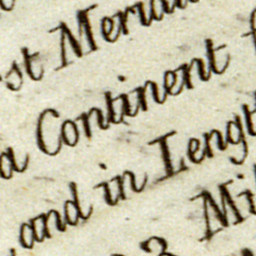 st Merid
a Continent f
and in Lengt
3 Mi